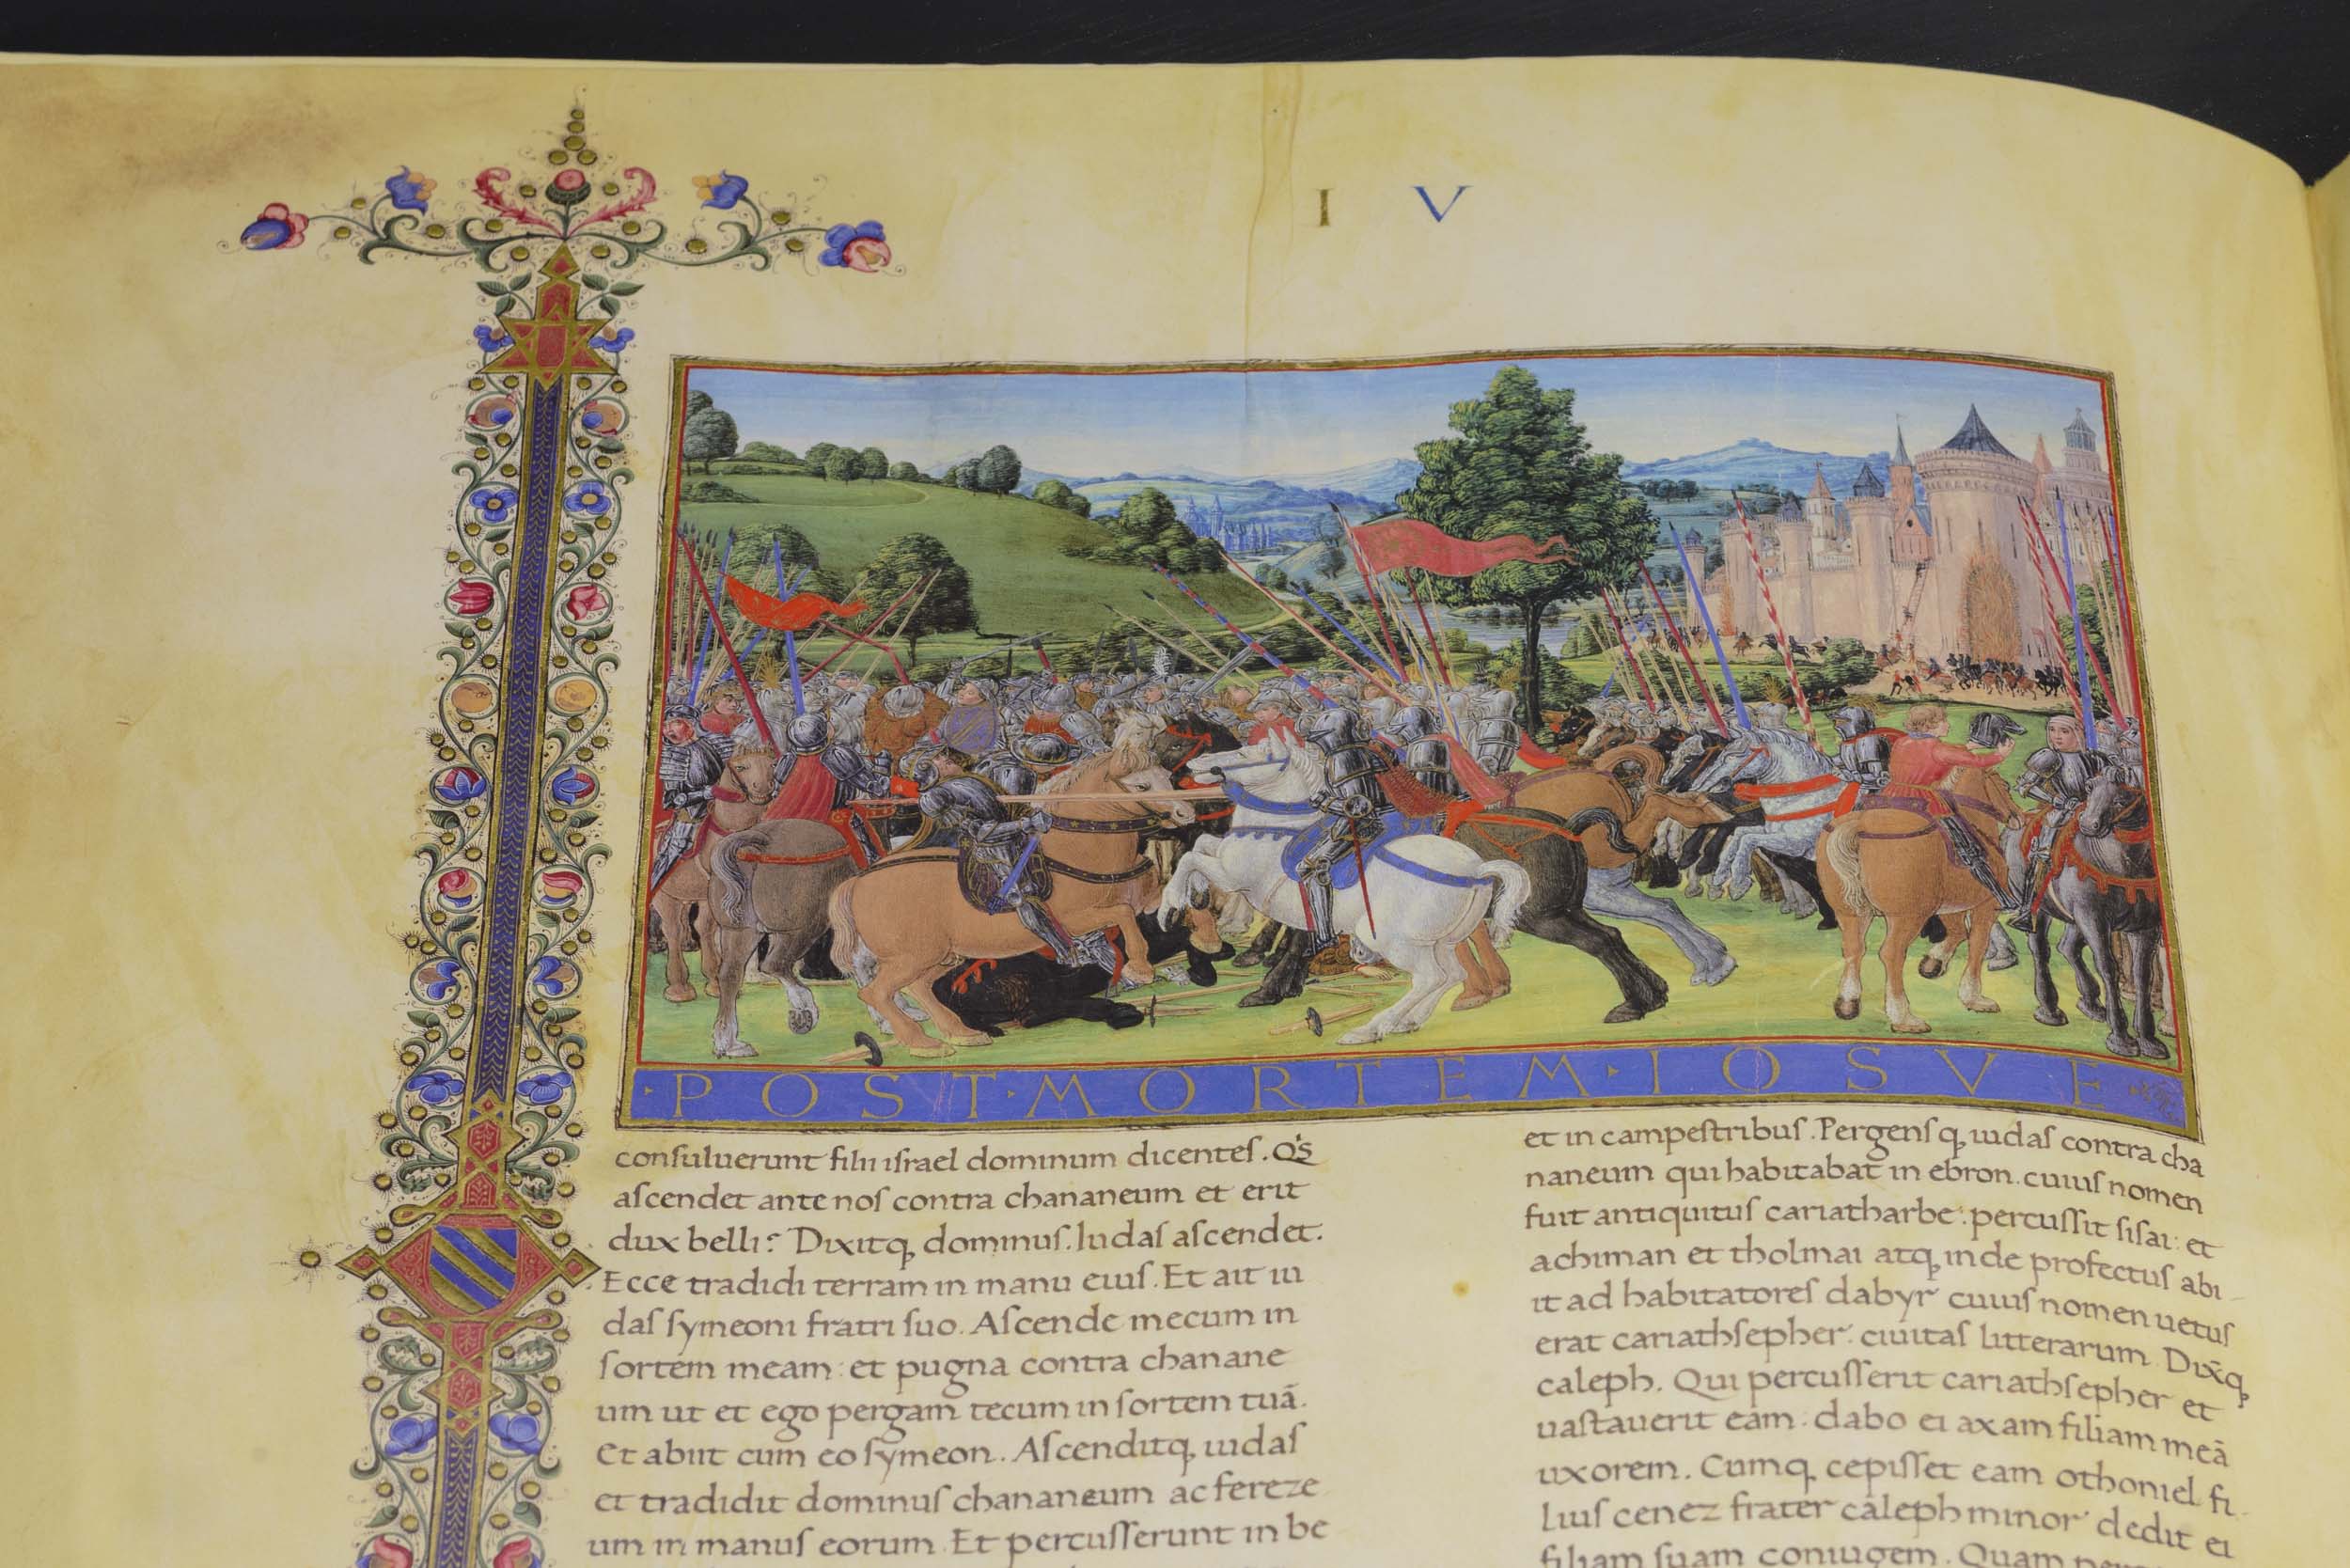 I V
·POST·MORTEM·IOSVE·
consuluerunt filii israel dominum dicentes. Qͥs
ascendet ante nos contra chananeum et erit
dux belli? Dixitqꝫ dominus. Iudas ascendet.
Ecce tradidi terram in manu eius. Et ait iu
das symeoni fratri suo. Ascende mecum in
sortem meam: et pugna contra chanane
um ut et ego pergam tecum in sortem tuā.
Et abiit cum eo symeon. Ascenditqꝫ iudas
et tradidit dominus chananeum ac fereze
um in manus eorum. Et percusserunt in be
et in campestribus. Pergensqꝫ iudas contra cha
naneum qui habitabat in ebron. cuius nomen
fuit antiquitus cariatharbe: percussit sisai: et
achiman et tholmai atqꝫ inde profectus abi
it ad habitatores dabyr cuius nomen uetus
erat cariathsepher: ciuitas litterarum. Dixq̄ꝫ
caleph. Qui percusserit cariathsepher et
uastauerit eam: dabo ei axam filiam meā
uxorem. Cumqꝫ cepisset eam othoniel fi
lius cenez frater caleph minor dedit ei
filiam suam coniugem. Quam